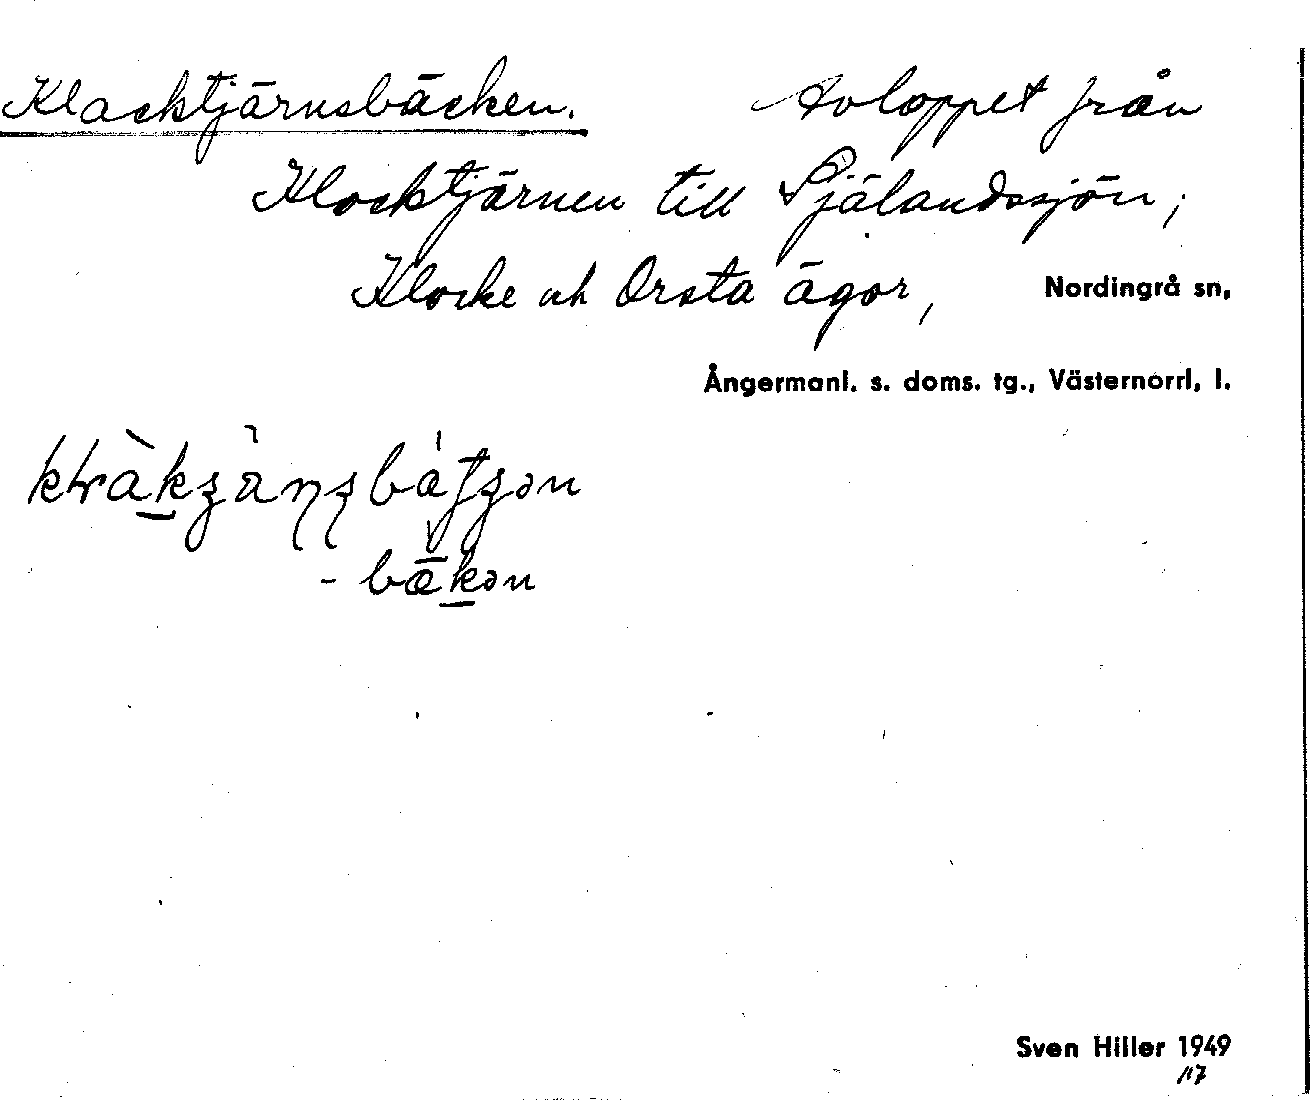 Klocktjärnsbäcken. Avloppet från
Klocktjärnen till Själandssjön,
Klocke och Orsta ägor, Nordingrå sn,
Ångermanl. s. doms. tg., Västernorrl. l.
- bækən
Sven Hiller 1949